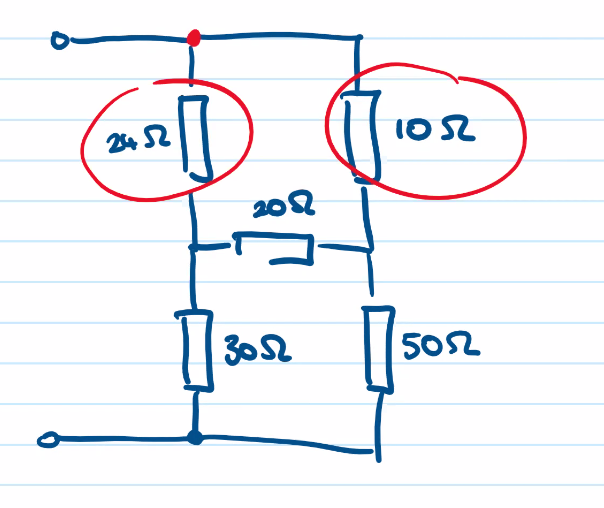 24Ω 10Ω
20Ω
30Ω 50Ω